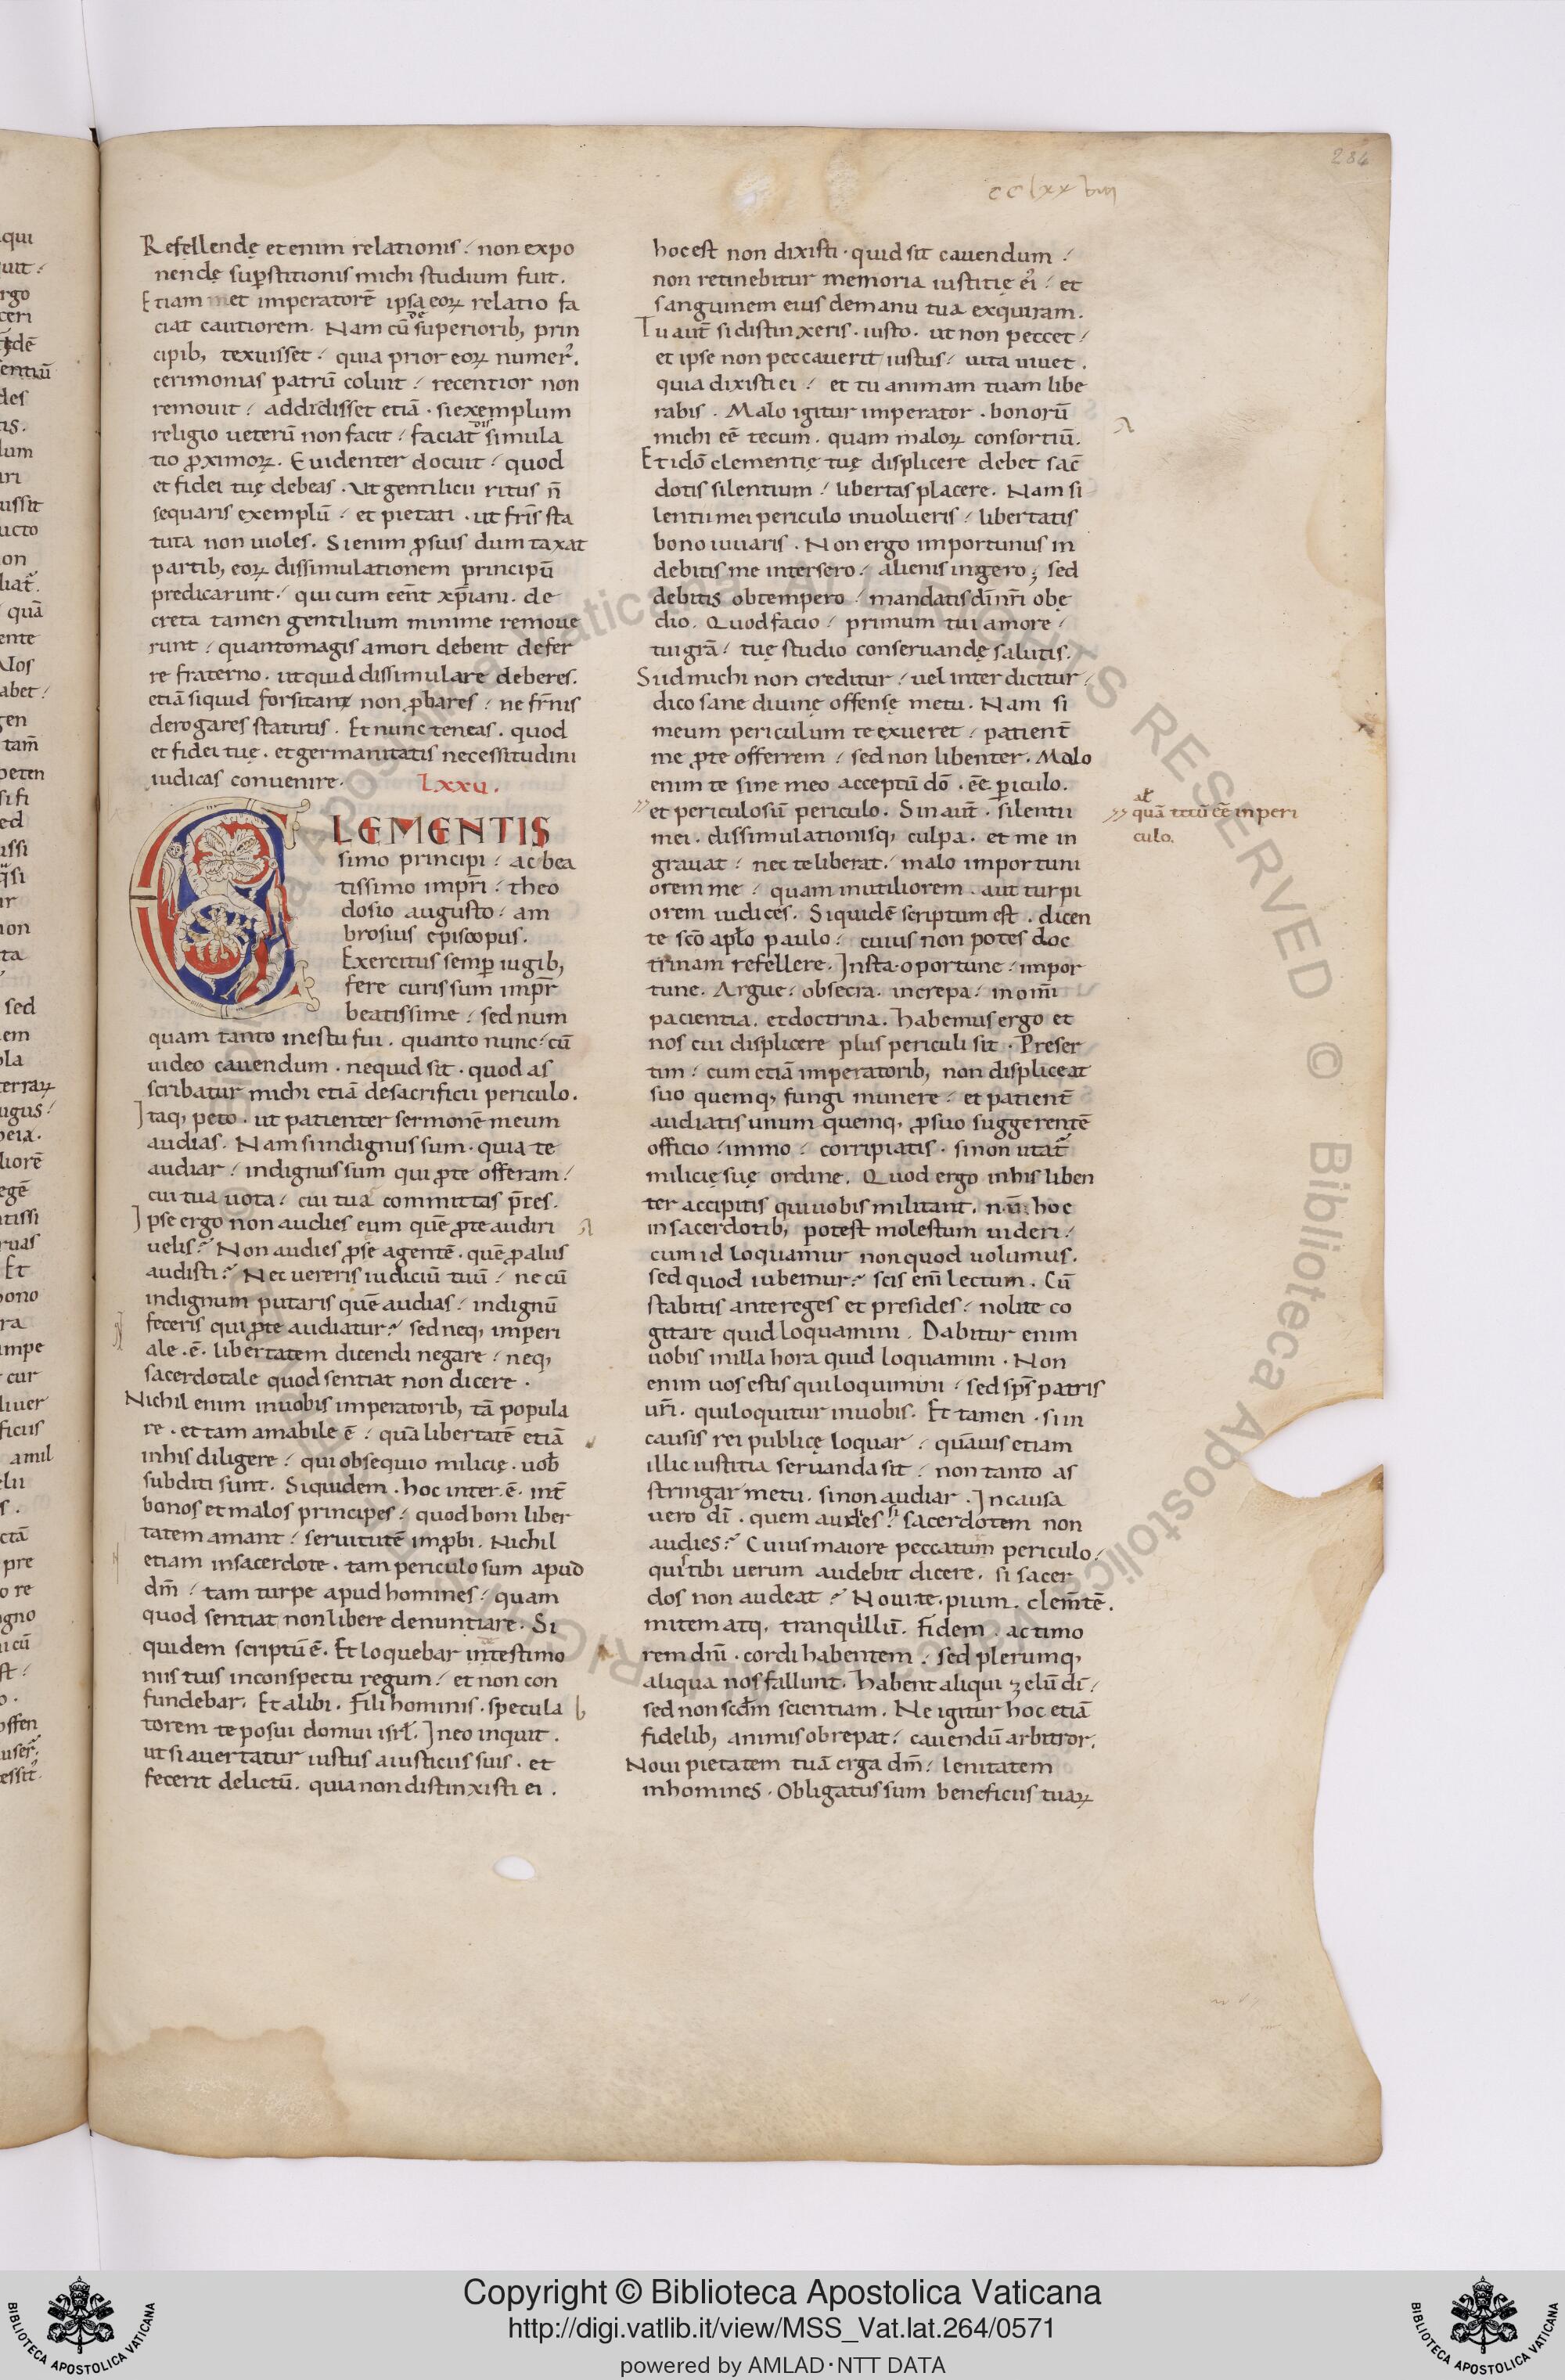 284
cclxxviii
Refellendę etenim relationis / non expo
nendę suꝑstitionis michi studium fuit.
Etiam met imperatorē ipsa eoꝝ relatio fa
ciat cautiorem. Nam cū de superiorib; prin
cipib; texuisset / quia prior eoꝝ numer᷒.
cerimonias patrū coluit / recentior non
remouit / addidisset etiā · si exemplum
religio ueterū non facit / faciat dissimula
tio ꝓximoꝝ. Euidenter docuit / quod
et fidei tuę debeas. Ut gentilicii ritus n̄
sequaris exemplū / et pietati · ut fr̄is sta
tuta non uioles. Si enim ꝓ suis dum taxat
partib; eoꝝ dissimulationem principū
predicarunt / qui cum eent̄ xp̄iani. de
creta tamen gentilium minime remoue
runt / quantomagis amori debent defer
re fraterno. ut quid dissimulare deberes.
etiā siquid forsitane non ꝓbares / ne fr̄nis
derogares statutis. Et nunc teneas. quod
et fidei tuę. et germanitatis necessitudini
iudicas conuenire.
Lxxu.
CLEMENTIS
simo principi / ac bea
tissimo imp̄ri / theo
dosio augusto / am
brosius episcopus.
Exercitus semꝑ iugib;
fere curis sum imp̄r
beatissime / sed num
quam tanto inestu fui. quanto nunc / cū
uideo cauendum · nequid sit · quod as
scribatur michi etiā de sacrificii periculo.
Itaq; peto · ut patienter sermonē meum
audias. Nam si indignus sum · quia te
audiar / indignus sum qui ꝓ te offeram /
cui tua uota / cui tua committas p̄ces.
Ipse ergo non audies eum quē ꝓ te audiri
uelis? Non audies ꝓ se agentē · quē ꝓ aliis
audisti? Nec uereris iudiciū tuū / ne cū
indignum putaris quē audias / indignū
feceris qui ꝓ te audiatur? sed neq; imperi
ale · ē · libertatem dicendi negare / neq;
sacerdotale quod sentiat non dicere ·
Nichil enim inuobis imperatorib; tā popula
re · et tam amabile ē / quā libertatē etiā
inhis diligere / qui obsequio milicię · uob̄
subditi sunt. Siquidem · hoc inter · ē · int̄
bonos et malos principes / quod boni liber
tatem amant / seruitutē imꝓbi. Nichil
etiam insacerdote · tam periculosum apud
dm̄ / tam turpe apud homines / quam
quod sentiat non libere denuntiare. Si
quidem scriptū ē. Et loquebar in de testimo
niis tuis inconspectu regum / et non con
fundebar. Et alibi. Fili hominis · specula
torem te posui domui isrl̄. Ineo inquit.
ut si auertatur iustus a iusticiis suis · et
fecerit delictū. quia non distinxisti ei.
hoc est non dixisti · quid sit cauendum /
non retinebitur memoria iustitię ei᷒ / et
sanguinem eius demanu tua exquiram.
Tu aut̄ si distinxeris · iusto · ut non peccet /
et ipse non peccauerit iustus / uita uiuet.
quia dixisti ei / et tu animam tuam libe
rabis. Malo igitur imperator · bonorū
michi eē tecum. quam maloꝝ consortiū.
Et idō clementię tuę displicere debet sac̄
dotis silentium / libertas placere. Nam si
lentii mei periculo inuolueris / libertatis
bono iuuaris. Non ergo importunus in
debitis me intersero / alienis ingero; sed
debitis obtempero / mandatis dī nr̄i obę
dio. Quod facio / primum tui amore /
tui grā / tuę studio conseruandę salutis.
Si id michi non creditur / uel interdicitur /
dico sane diuinę offensę metu. Nam si
meum periculum te exueret / patient̄
me ꝓ te offerrem / sed non libenter. Malo
enim te sine meo acceptū dō · eē ꝑiculo.
et periculosū periculo. Sin aut̄ · silentii
mei · dissimulationisq; culpa · et me in
grauat / nec te liberat / malo importuni
orem me / quam inutiliorem · aut turpi
orem iudices. Siquidē scriptum est · dicen
te sc̄o apl̄o paulo / cuius non potes doc
trinam refellere. Insta oportune / impor
tune. Argue / obsecra. increpa / in om̄i
pacientia. et doctrina. Habemus ergo et
nos cui displicere plus periculi sit. Preser
tim / cum etiā imperatorib; non displiceat
suo quemq; fungi munere / et patient̄
audiatis unum quemq; ꝓ suo suggerentē
officio / immo / corripiatis · si non utat᷒
milicię suę ordine. Quod ergo inhis liben
ter accipitis qui uobis militant. nū hoc
in sacerdotib; potest molestum uideri /
cum id loquamur non quod uolumus.
sed quod iubemur? scis em̄ lectum. Cū
stabitis ante reges et presides / nolite co
gitare quid loquamini. Dabitur enim
uobis inilla hora quid loquamini. Non
enim uos estis qui loquimini / sed sp̄s patris
ur̄i. qui loquitur inuobis. Et tamen · si in
causis rei publicę loquar / quāuis etiam
illic iustitia seruanda sit / non tanto as
stringar metu. si non audiar. In causa
uero dī · quem audies? si sacerdotem non
audies? Cuius maiore peccatum periculo /
quis tibi uerum audebit dicere. si sacer
dos non audeat? Noui te · pium · clem̄tē.
mitem atq; tranquillū. Fidem · ac timo
rem dn̄i · cordi habentem / sed plerumq;
aliqua nos fallunt. Habent aliqui zelū dī /
sed non scd̄m scientiam. Ne igitur hoc etiā
fidelib; animis obrepat / cauendū arbitror.
Noui pietatem tuā erga dm̄ / lenitatem
inhomines. Obligatus sum beneficiis tuaꝝ
al̄
quā tecū eē in peri
culo.
Copyright © Biblioteca Apostolica Vaticana
http://digi.vatlib.it/view/MSS_Vat.lat.264/0571
powered by AMLAD·NTT DATA
BIBLIOTECA APOSTOLICA VATICANA
BIBLIOTECA APOSTOLICA VATICANA